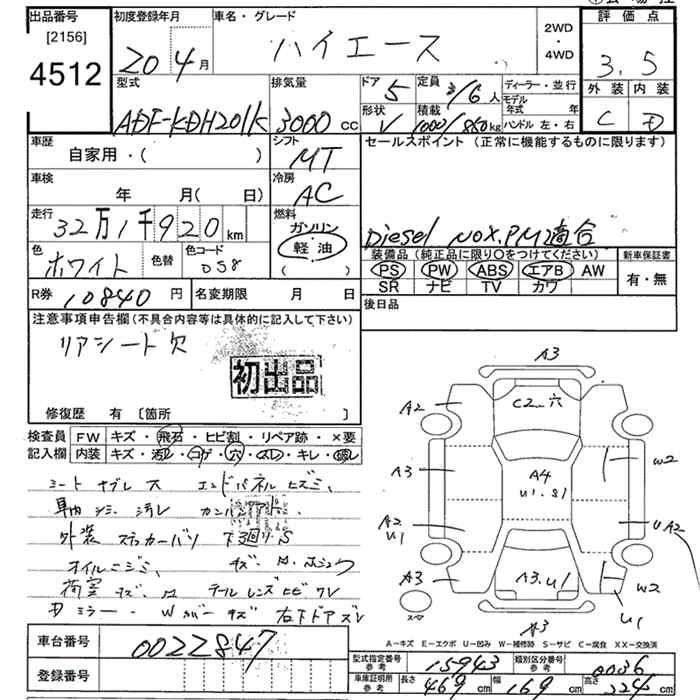 出品番号
[2156]
4512
初度登録年月
20年4月
車名・グレード
ハイエース
2WD
・
4WD
評価点
3.5
外装 内装
C D
型式
ADF-KDH201K
排気量
3000cc
ドア
5
形状
V
定員
3/6人
積載
1000/850kg
ディーラー・並行
モデル年式 年
ハンドル 左・右
車歴
自家用・( )
シフト
MT
車検
年 月( 日)
冷房
AC
走行
32万1千920km
燃料
ガソリン
軽油
色
ホワイト
色替
色コード
058
セールスポイント(正常に機能するものに限ります)
Diesel NOX.PM適合
装備品(純正品に限り○をつけてください)
PS PW ABS エアB AW
SR ナビ TV カワ
新車保証書
有・無
R券
10840円
名変期限 月 日
後日品
注意事項申告欄(不具合内容等は具体的に記入して下さい)
リアシート欠
初出品
修復歴 有 〔箇所 〕
検査員
記入欄
FW キズ・飛石・ヒビ割・リペア跡・×要
内装 キズ・汚レ・コゲ・穴・スレ・キレ・破レ
シートヤブレ 大 エンドパネルヒズミ
車内シミ 汚レ
外装 ステッカーバリ 下3回リS
オイルニジミ
荷室 キズ テールレンズヒビワレ
ミラー・Wカバーキズ 右下ドアズレ
A3
A2
C2 穴
A3
A4
U1.S1
W2
A2
U1
UA2
A3
A3.U1
W2
U1
スペア
A3
A-キズ E-エクボ U-凹み W-補修跡 S-サビ C-腐食 XX-交換済
車台番号
0022847
登録番号
型式指定番号
参考
15943
類別区分番号
参考
0036
車庫証明用
参考
長さ 469cm 幅 169cm 高さ 224cm